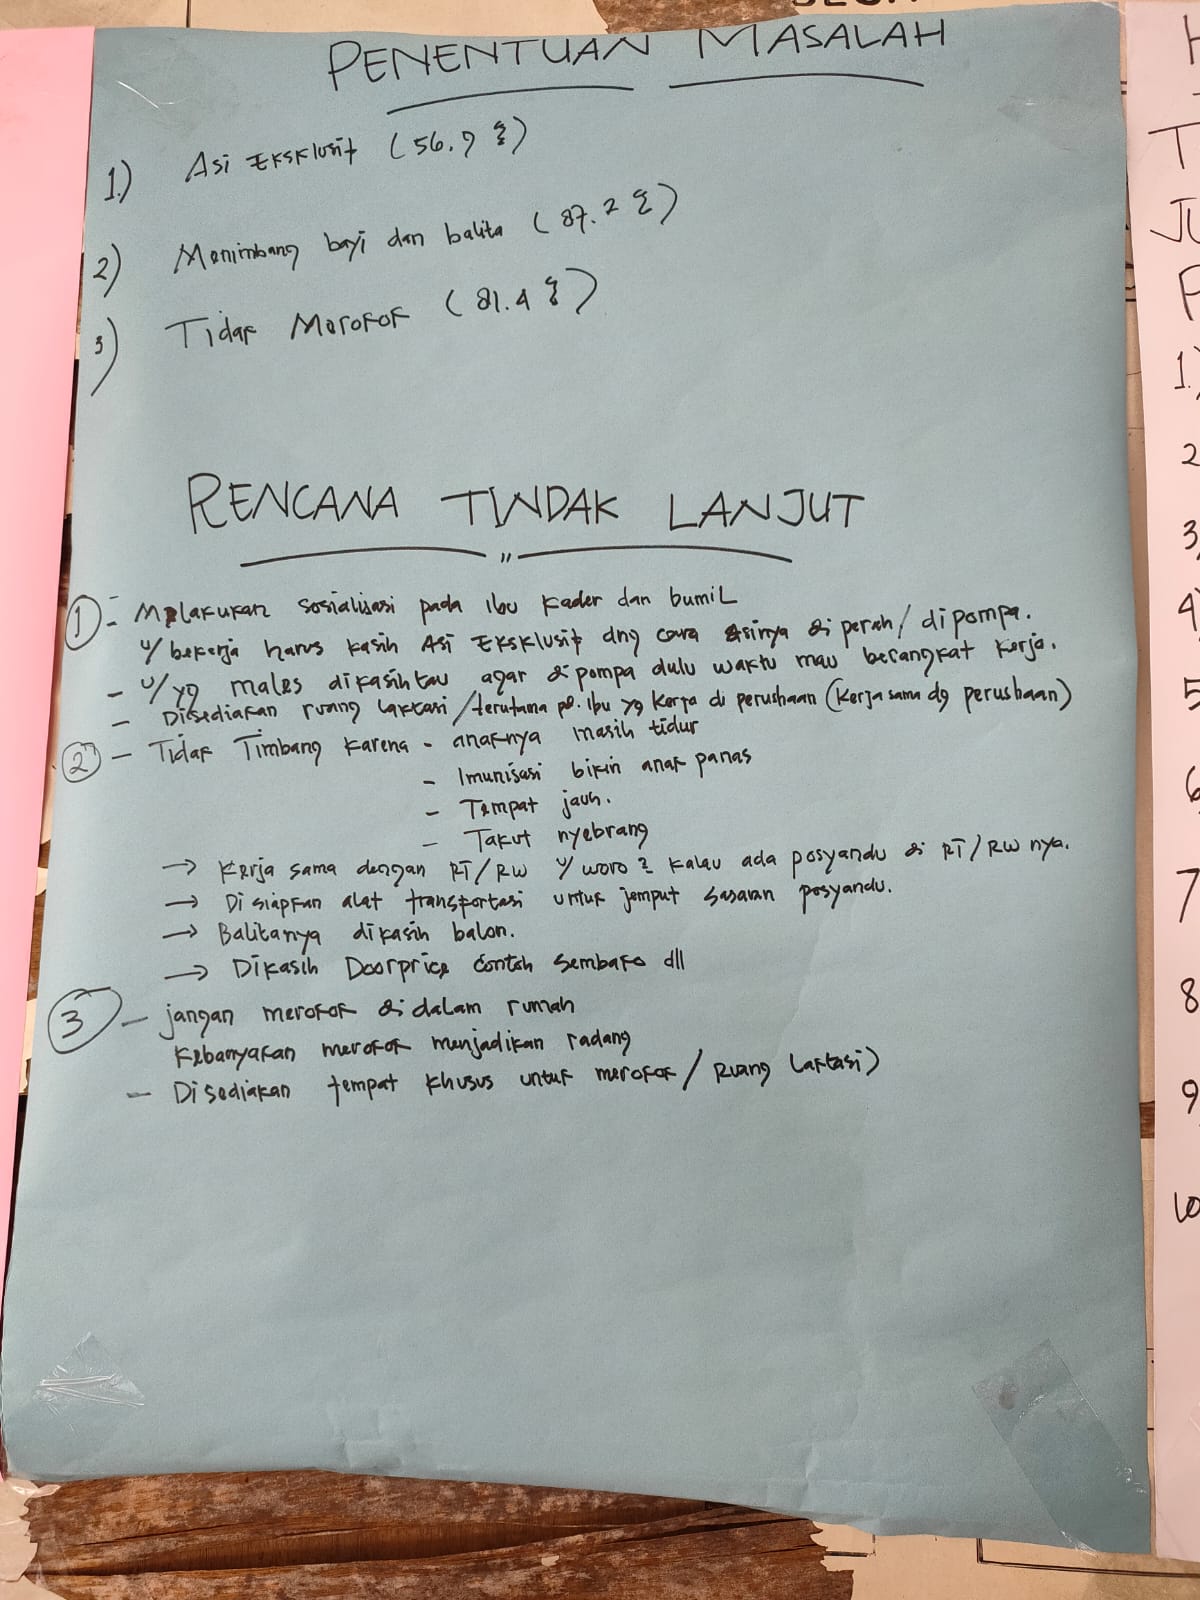 PENENTUAN MASALAH
1.) Asi Eksklusif (56.9 %)
2) Menimbang bayi dan balita (87.2 %)
3) Tidak Merokok (81.4 %)
RENCANA TINDAK LANJUT
1 - Melakukan sosialisasi pada ibu kader dan bumil
- u/ bekerja harus kasih Asi Eksklusif dng cara Asinya di perah/ dipompa.
- u/ yg males dikasihtau agar di pompa dulu waktu mau berangkat kerja.
- Disediakan ruang laktasi /terutama pd. Ibu yg kerja di perushaan (kerja sama dg perushaan)
2 - Tidak Timbang karena - anaknya masih tidur
- Imunisasi bikin anak panas
- Tempat jauh.
- Takut nyebrang
→ kerja sama dengan RT/RW u/ woro 2 kalau ada posyandu di RT/RW nya.
→ Disiapkan alat transportasi untuk jemput sasaran posyandu.
→ Balitanya dikasih balon.
→ Dikasih Doorprice contoh sembako dll
3 - jangan merokok di dalam rumah
Kebanyakan merokok menjadikan radang
- Disediakan tempat khusus untuk merokok / Ruang Laktasi)
1.)
2
3
4)
5
6
7
8
9
10